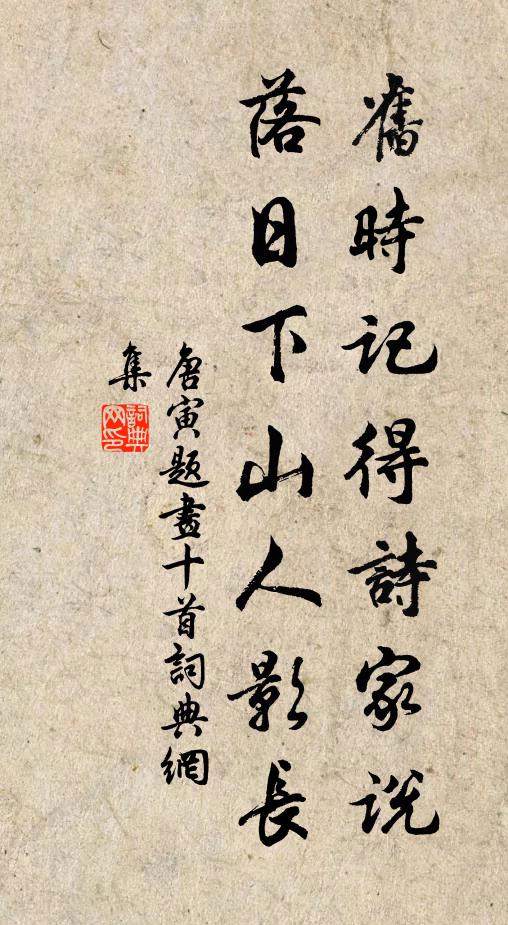 舊時記得詩家說
落日下山人影長
唐寅題畫十首詞典網
集
詞典
网印